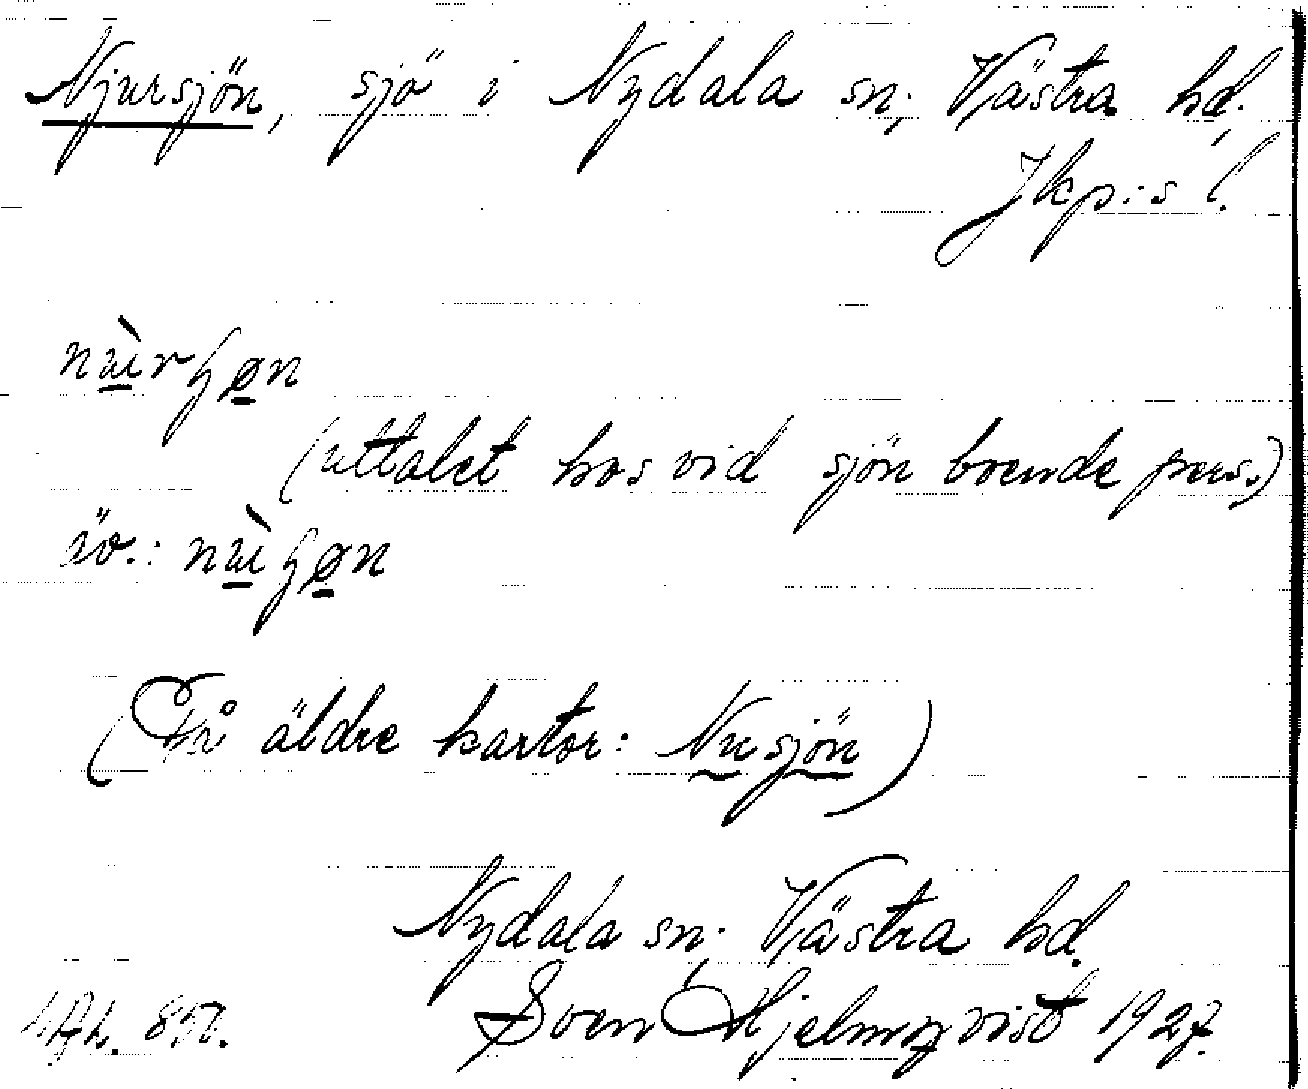 Njursjön, sjö i Nydala sn, Västra hd,
Jkp:s l.
(uttalet hos vid sjön boende pers.)
äv.:
(På äldre kartor: Nusjön)
Nydala sn, Västra hd.
Sven Hjelmqvist 1927.